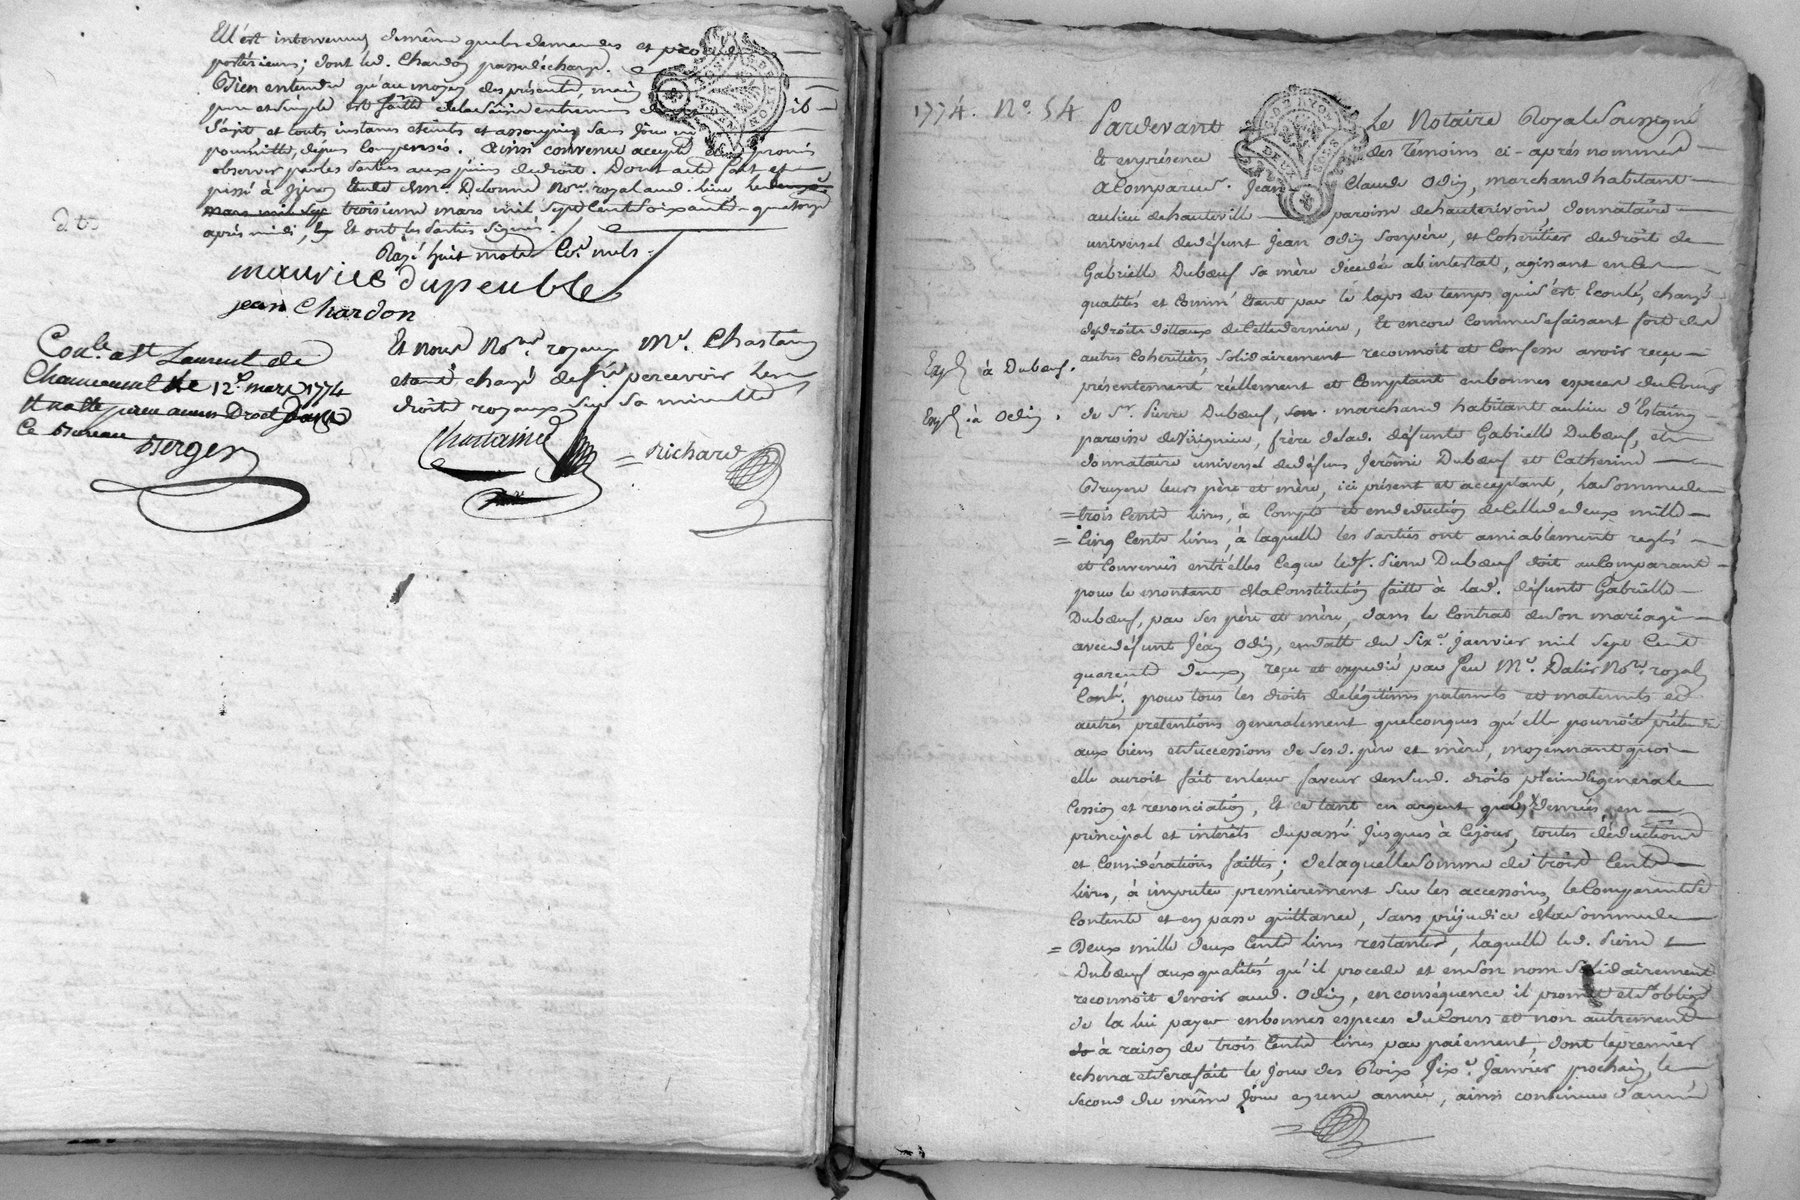 Et l'est intervenus, de même que les demandes et
postérieurs; dont led. Chardon passe décharge.
Bien entendu qu'au moyen des présents, main
pure et simple est faitte de la saisie entre mains
S'agit, et touts instances eteints et assoupies sans
poursuitte, dépens compensés. ainsi convenu accepté et promis
observer par les parties aux peines de droit. Dont acte fait et
passé à étude de Me. Delorme Nore. royal aud. lieu le
mars mil sept troisieme mars mil sept cent soixante-quatorze
après midi, Et ont les parties signées.
Rayé huit mots Cy. nuls.
maurice dupeuble
jean Chardon
Conlé. a St. Laurent de
Chamousset le 12e. mars 1774
ce Bureau
Berger
Et nous Nores. royaux Mre. Chastaing
etant chargé de faire percevoir les
droits royaux sur sa minutte
Chastaing
= Richard
1774. No. 54
Pardevant le Notaire Royal Soussigné
Et en présence des Témoins ci-après nommés
a Comparu Sr. Jean Claude Odin, marchand habitant
au lieu de hauteville paroisse de hauterivoire, donnataire
universel de défunt Jean Odin son père, et Cohéritier de droit de
Gabrielle Dubœuf sa mère décédée ab intestat, agissant en ces
qualités et comm' etant par le laps de temps qui s'est Ecoulé, chargé
des droits dottaux de Cette derniere, Et encore comme se faisant fort des
autres Cohéritiers, solidairement reconnoit et Confesse avoir reçu
Exp. à Dubœuf.
présentement, réellement et Comptant en bonnes especes du Cours
Exp. à Odin.
de Sr. Pierre Dubœuf, marchand habitant au lieu d'Estaing
paroisse de Virigneu, frère de lad. défunte Gabrielle Dubœuf, et
donnataire universel de défuns Jerôme Dubœuf et Catherine
Bruyere leurs père et mère, ici présent et acceptant, la somme de
= trois Cents livres, à Compte et en deduction de Celle de deux mille
= Cinq Cents livres, à laquelle les Parties ont amiablement reglé
et Convenu entr'elles Ce que led. Sr. Pierre Dubœuf doit au Comparant
pour le montant de la Constitution faitte à lad. défunte Gabrielle
Dubœuf, par ses père et mère, dans le Contrat de son mariage
avec défunt Jean Odin, en datte du Sixe. janvier mil sept Cent
quarente deux, reçu et expédié par feu Me. Dalier Nore. royal
Conlé. pour tous les droits de légitimes paternels et maternels et
autres pretentions generalement quelconques qu'elle pourroit prétendre
aux biens et successions de sesd. père et mère, moyennant quoi
elle auroit fait en leur faveur de susd. droits pleine et générale
Cession et renonciation, Et ce tant en argent que denrées en
principal et intérêts du passé jusques à ce jour, toutes déductions
et Considérations faittes; de laquelle somme de trois Cents
livres, à imputer premierement sur les accessoires, le Comparant se
Contente et en passe quittance, sans préjudice de la somme de
= Deux mille deux Cents livres restantes, laquelle led. Pierre
Dubœuf aux qualités qu'il procede et en son nom solidairement
reconnoit devoir aud. Odin, en conséquence il promet et s'oblige
de la lui payer en bonnes especes du Cours et non autrement
à raison de trois Cents livres par paiement, dont le premier
echerra et sera fait le jour des Rois sixe. Janvier prochain, le
second du même jour en une année, ainsi continuer d'année